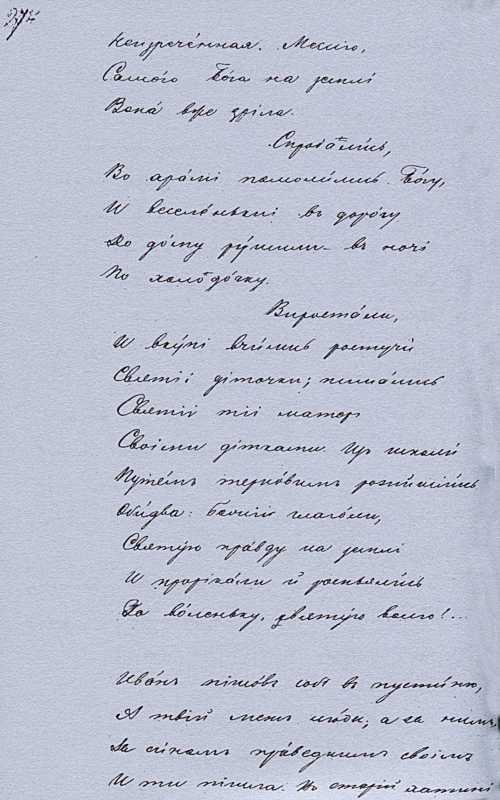 Неизречённая. Мессію,
Самого́ Бо́га на землі
Вона́ вже зріла.
Спрода́лись,
Во ара́мі помоли́лись Бо́гу,
И веселе́нькі въ доро́гу
До до́му ру́шили въ ночі
По холодо́чку.
Вироста́ли,
И вку́пі вчи́лись ростучи
Святиї діточки; пиша́лись
Святиї тіі матері
Своіми дітками. Изъ школи
Путе́мъ терно́вимъ розійшли́сь
Оби́два: Божиї глаго́ли,
Святу́ю пра́вду на землі
И прорікали й роспьяли́сь
За во́леньку, святу́ю волю!...
Ива́нъ пішо́въ собі въ пусти́ню,
А твій межъ лю́ди; а за нимъ,
За си́номъ пра́ведникомъ своімъ
И ти пішла. Въ старій хатині